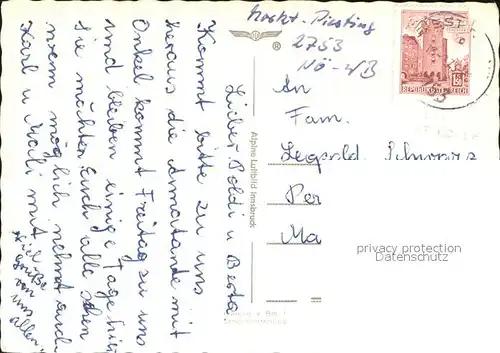 Markt-Piesting
2753
NÖ-WB
REPUBLIK ÖSTERREICH
®
Alpine Luftbild Innsbruck
An
Fam.
Leopold Schwarz
Per
Ma
privacy protection
Datenschutz
Lieber Poldi u Berta
Kommt bitte zu uns
heraus die Amatante mit
Onkel kommt Freitag zu uns
und bleiben einige Tage hier
sie möchten Euch alle sehen
wenn möglich nehmt auch
Karl u Maili mit
Viel
von
uns
allen